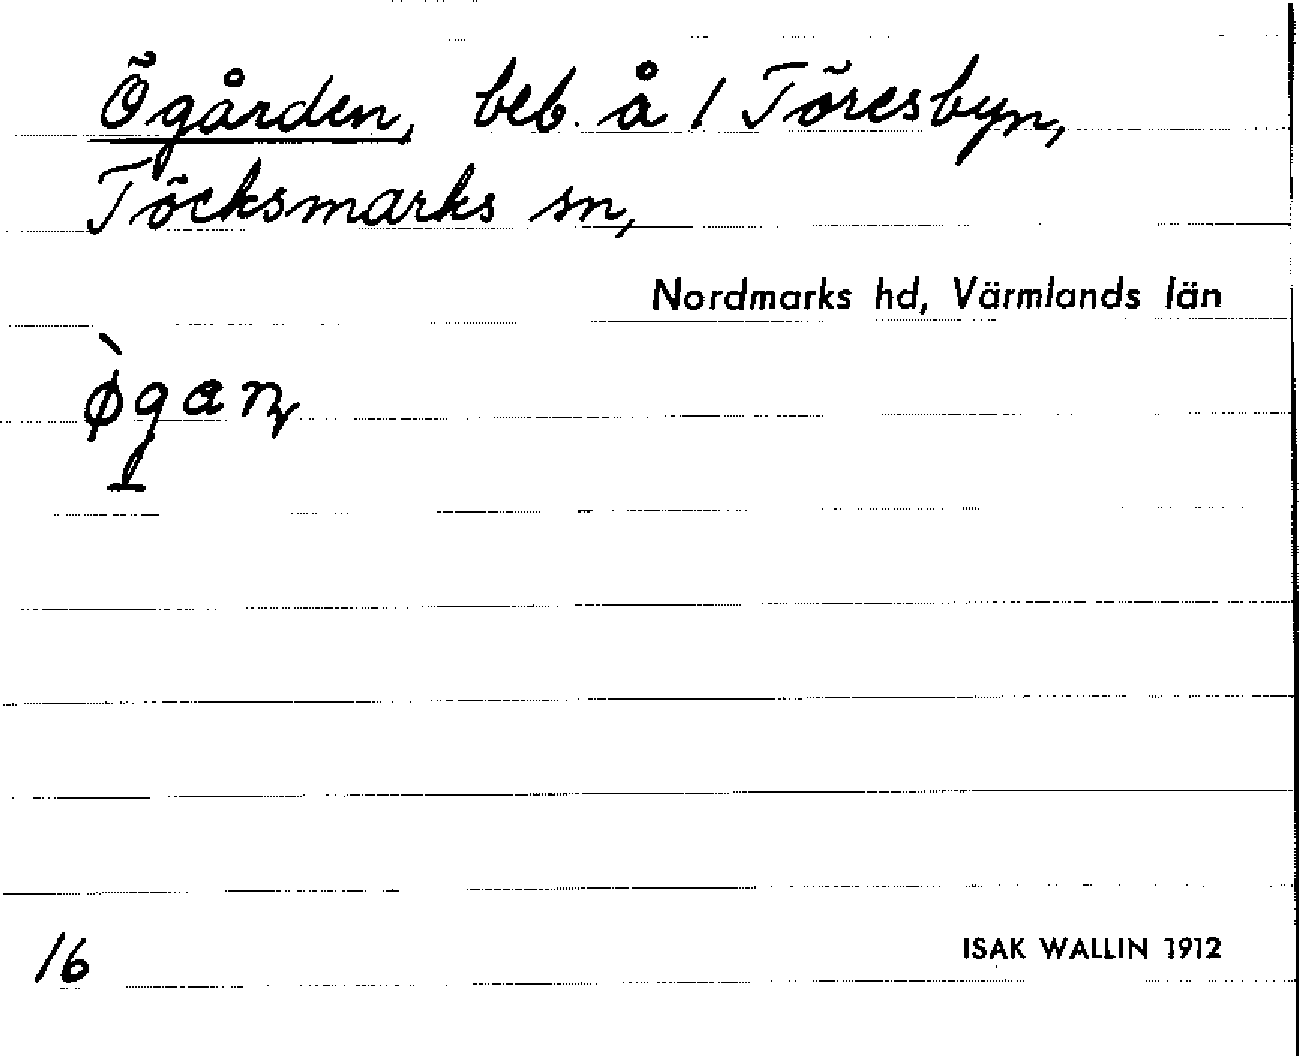 Ögården, beb. å 1 Töresbyn,
Töcksmarks sn,
Nordmarks hd, Värmlands län
ø̀gaɳ
16
ISAK WALLIN 1912